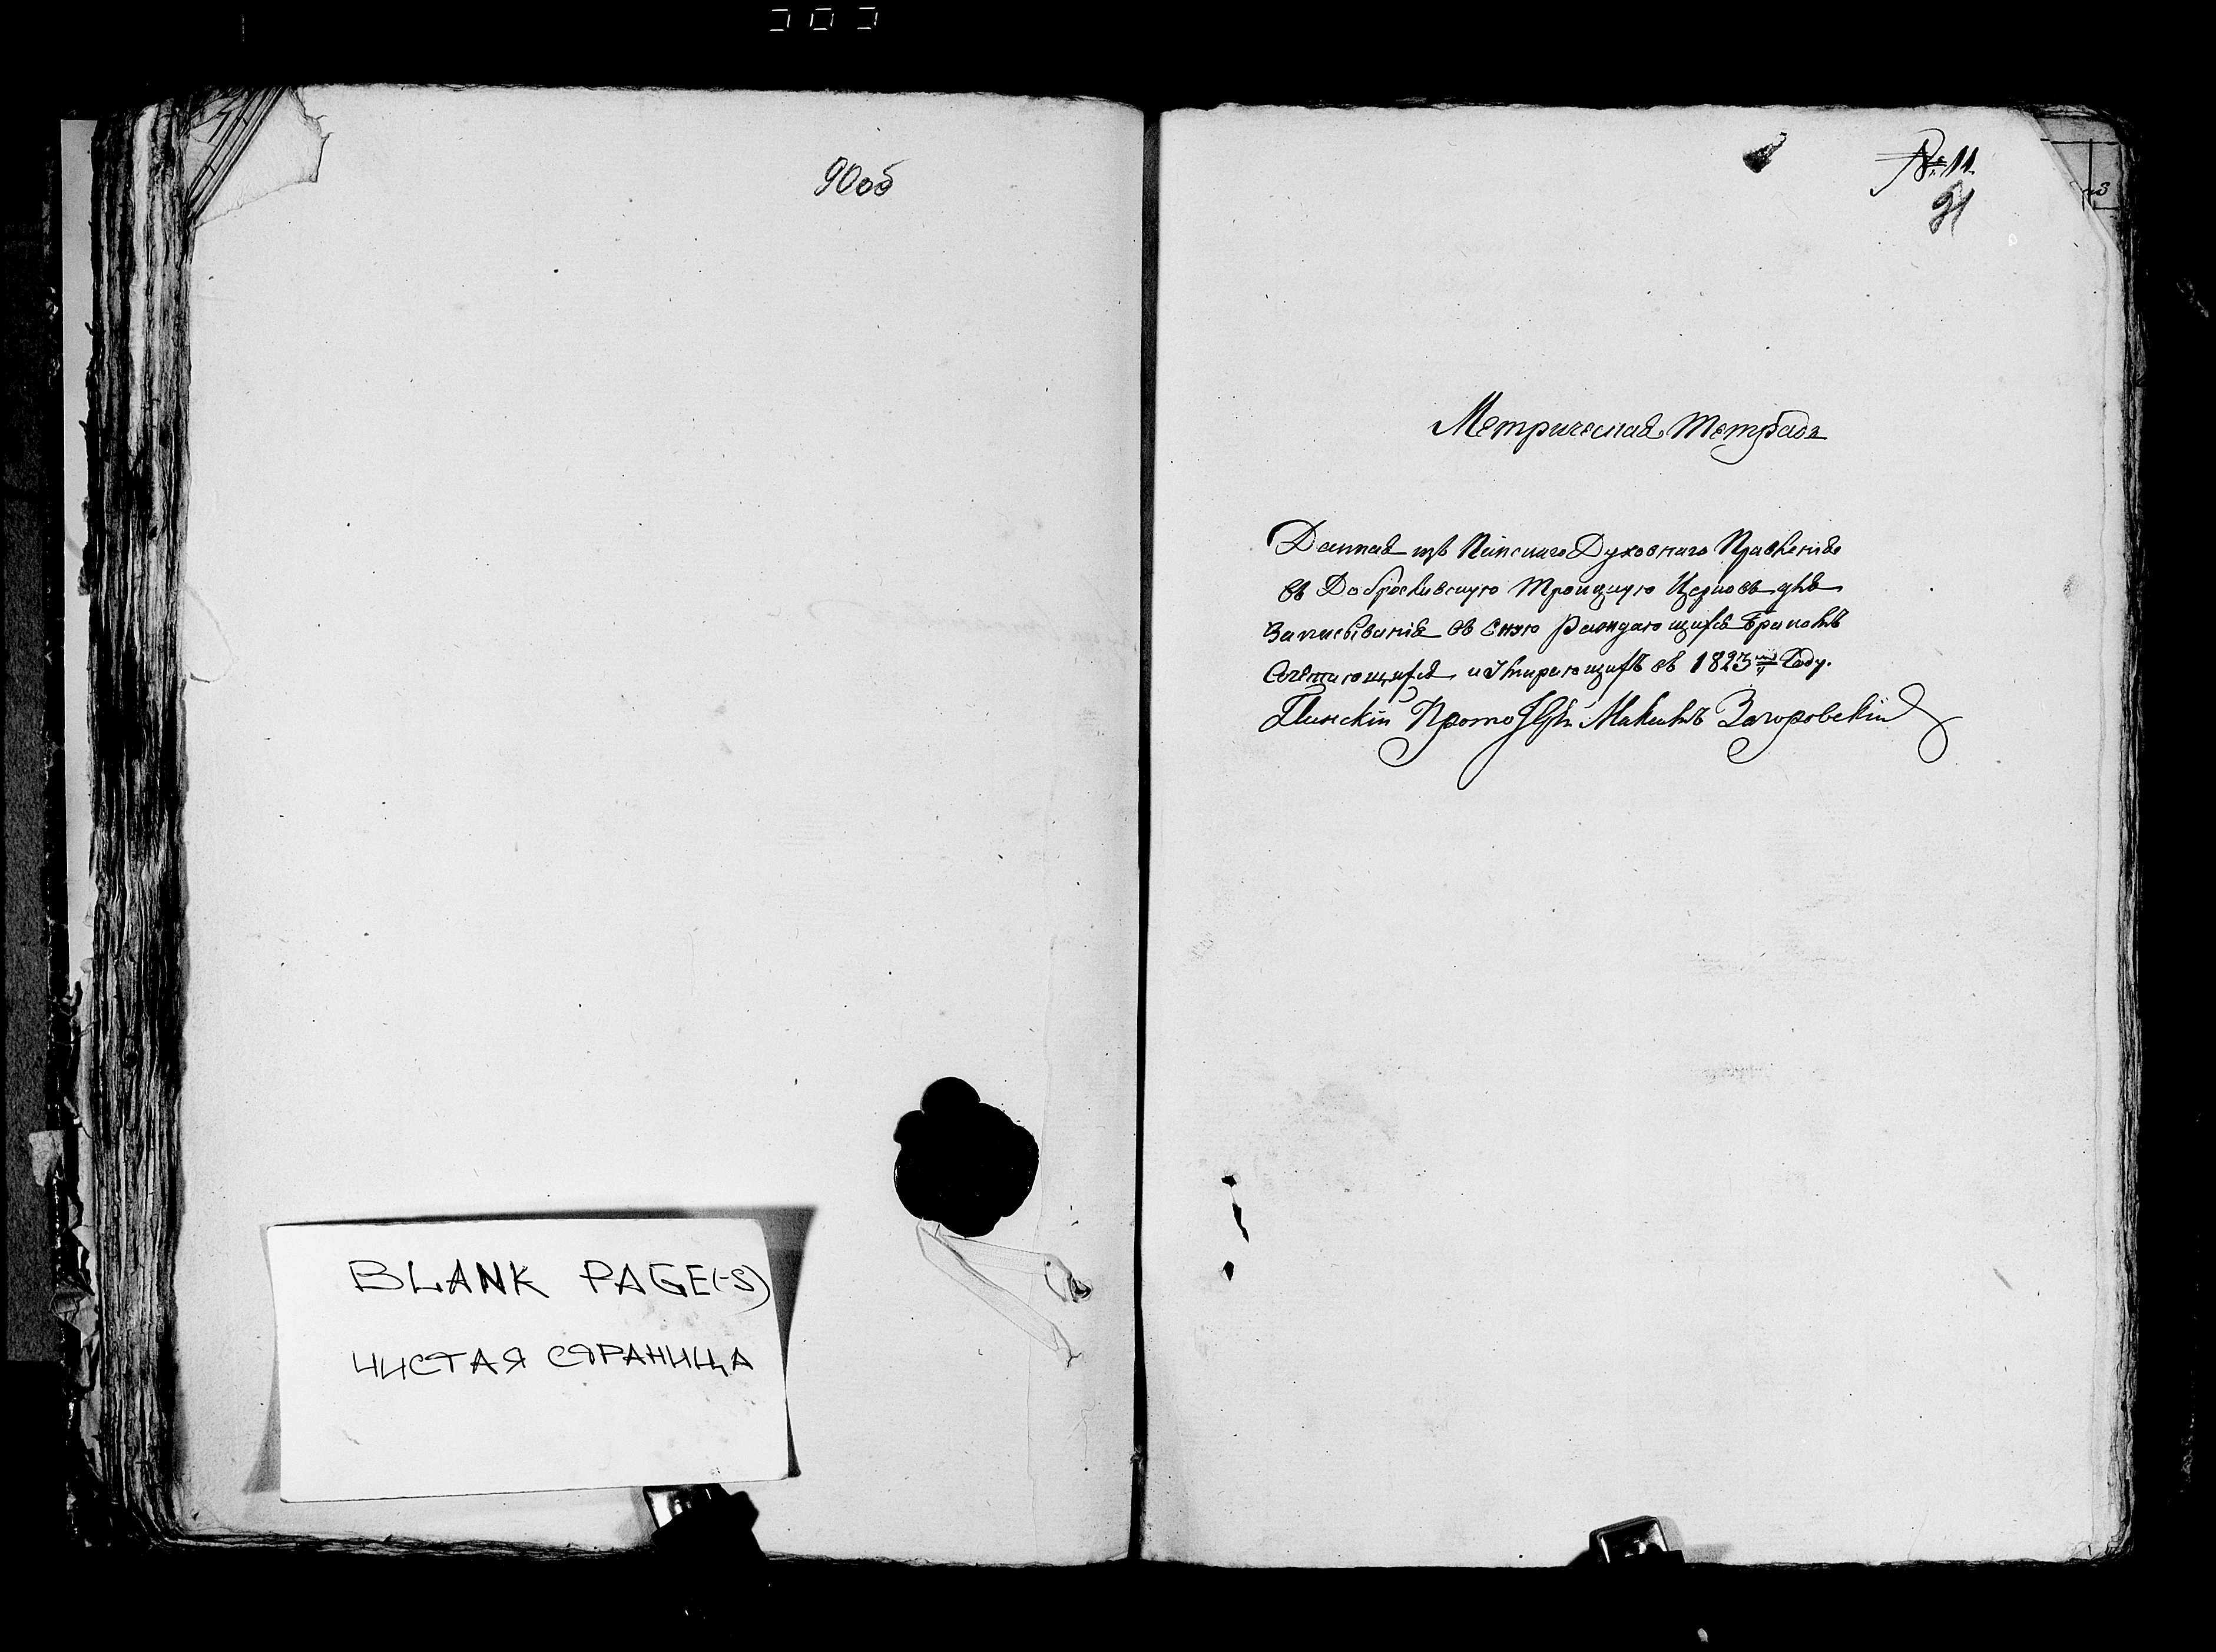 90об
BLANK PAGE(-S)
ЧИСТАЯ СТРАНИЦА
№ 11
91
Метрическая тетрадь
Данная изъ Пинскаго Духовнаго Правленія
въ Доброславскую Троицкую Церковь для
Записыванія въ оную Раждающихся Браколъ
Сочетающихся и Умирающихъ въ 1823 Году.
Пинскій Прото Загоровскій